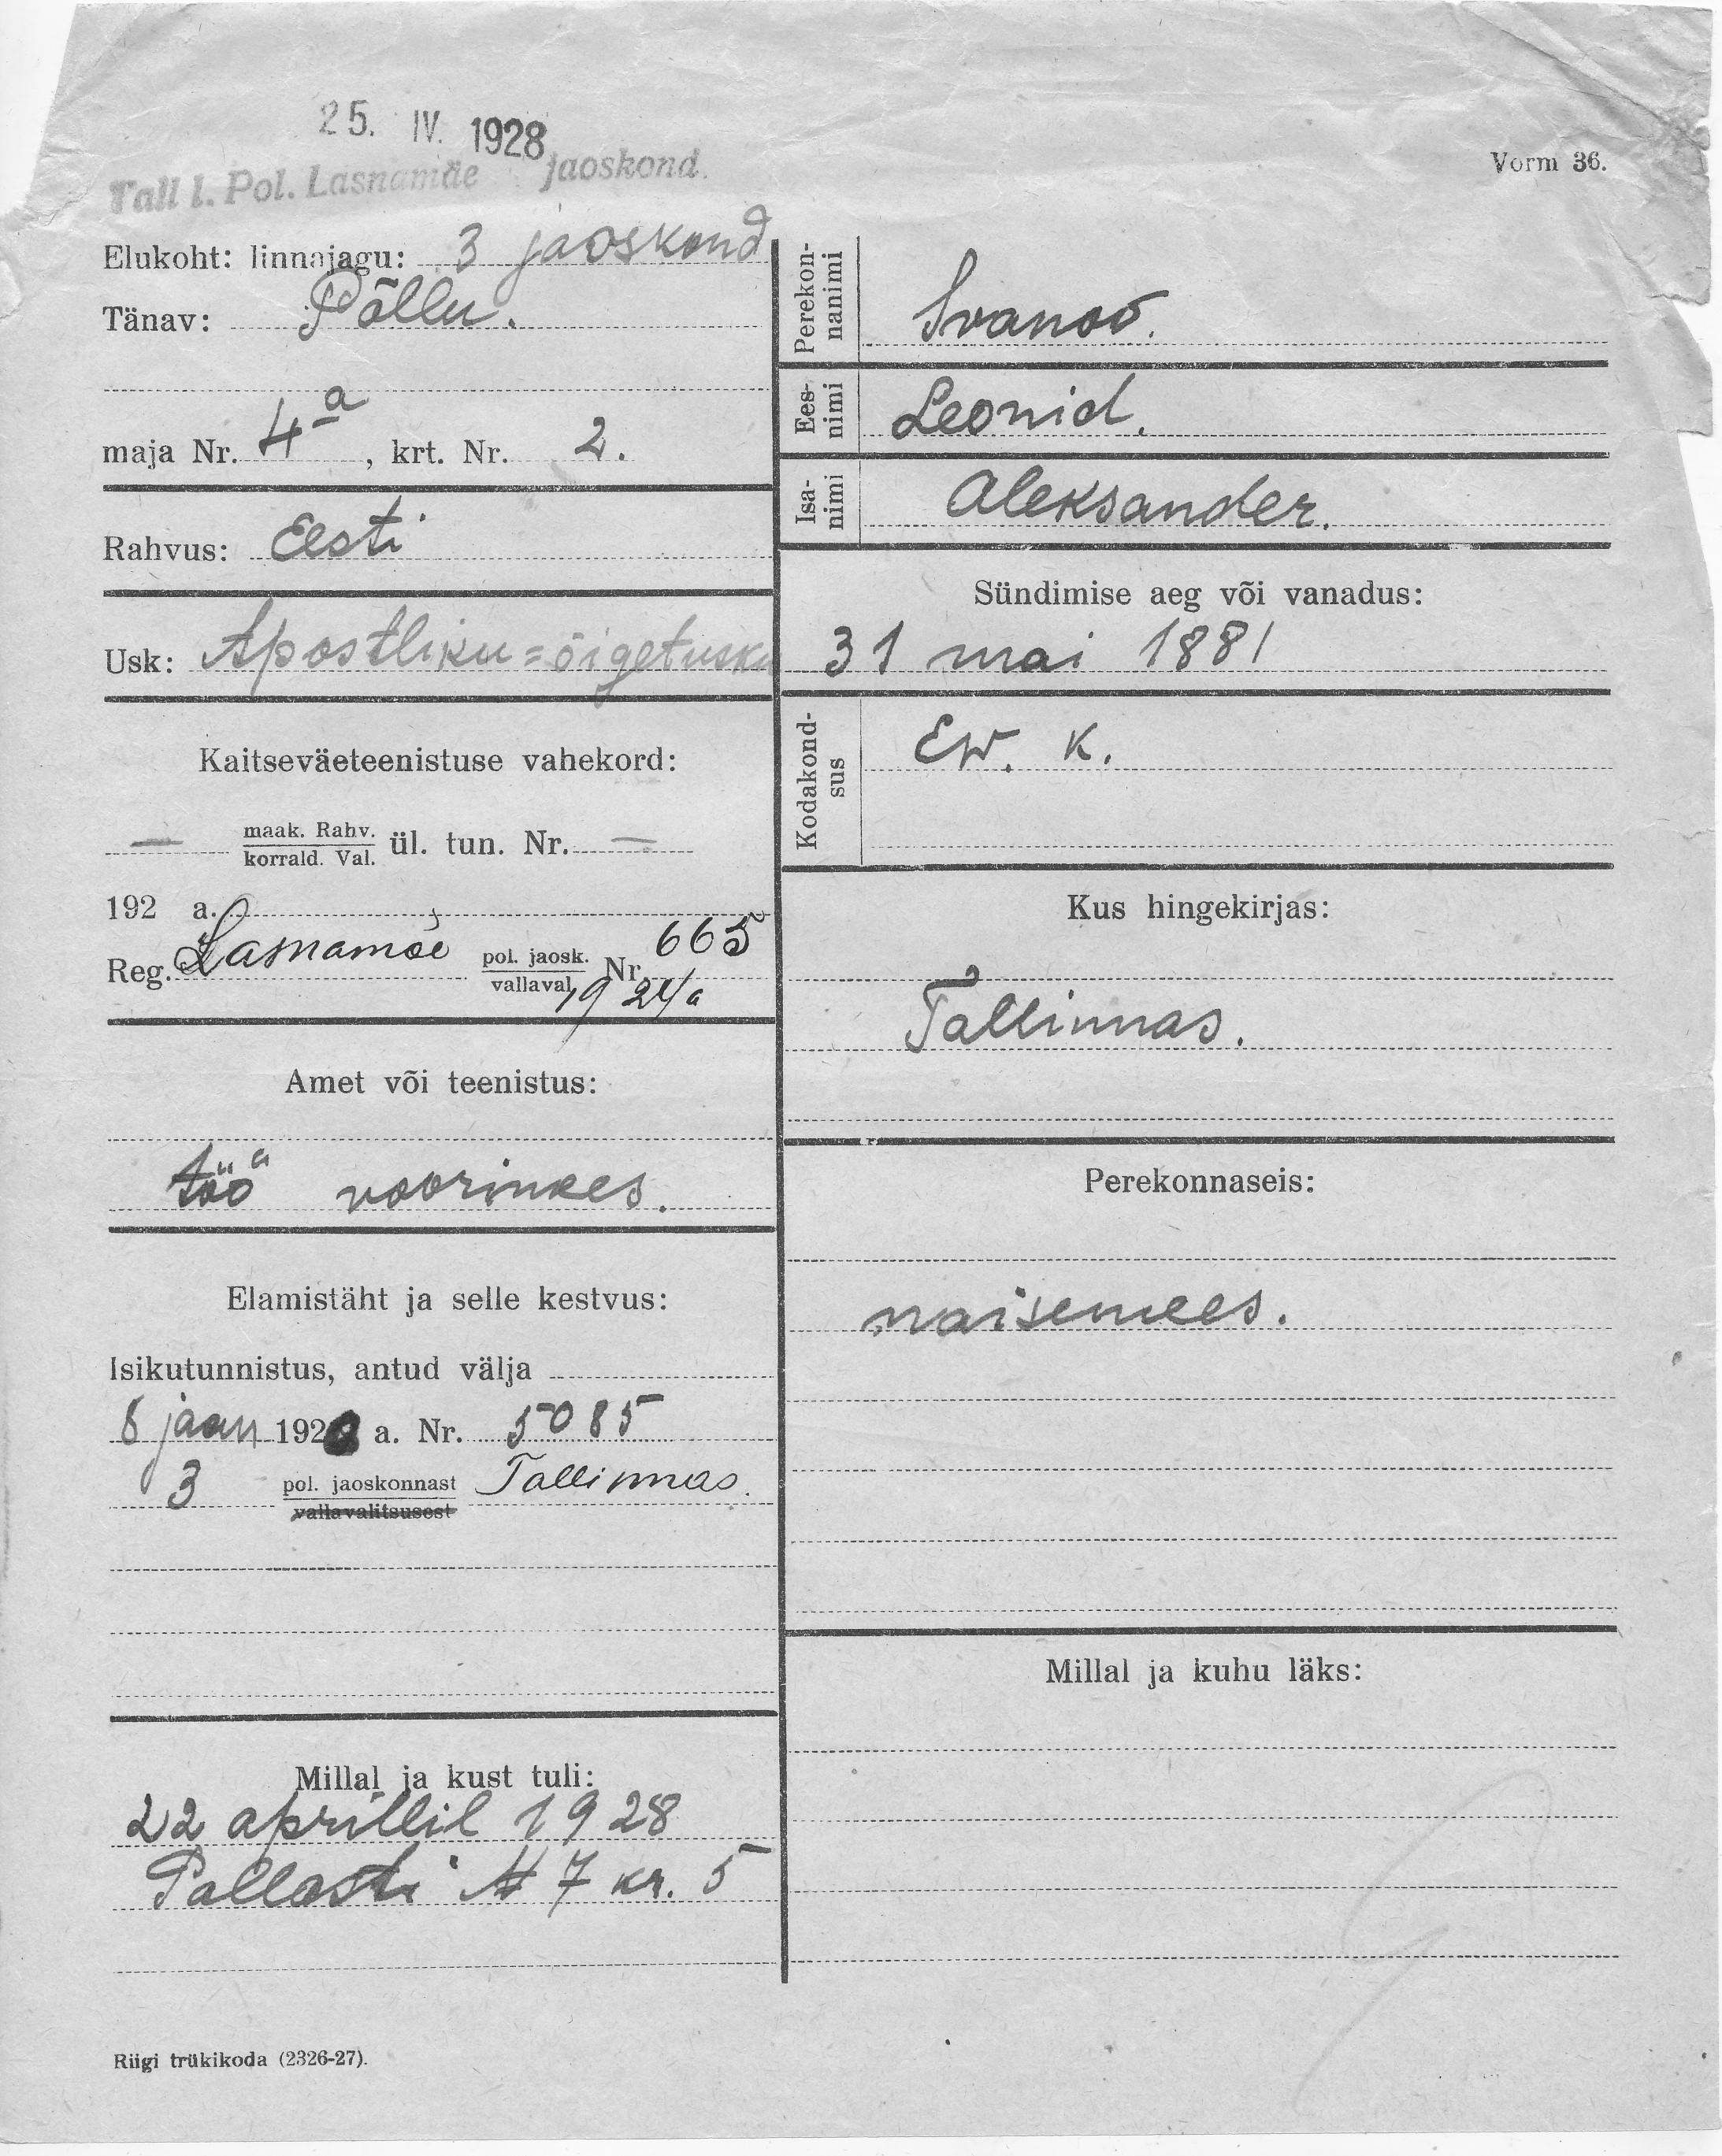 25. IV. 1928
Tall l. Pol. Lasnamäe jaoskond.
Vorm 36.
Elukoht: linnajagu: 3 jaoskond
Tänav: Põllu.
maja Nr. 4a, krt. Nr. 2.
Rahvus: Eesti
Usk: Apostliku=õigetusku
Kaitseväeteenistuse vahekord:
— maak. Rahv.
korrald. Val. ül. tun. Nr. —
192 a.
Reg. Lasnamäe pol. jaosk. Nr. 665
vallaval. 1924/a
Amet või teenistus:
töö voorimees.
Elamistäht ja selle kestvus:
Isikutunnistus, antud välja
8 jaan 192 a. Nr. 5085
3 pol. jaoskonnast Tallinnas.
vallavalitsusest
Millal ja kust tuli:
22 aprillil 1928
Pallasti № 7 kr. 5
Riigi trükikoda (2326-27).
Perekon-
nanimi Ivanov.
Ees-
nimi Leonid.
Isa-
nimi Aleksander.
Sündimise aeg või vanadus:
31 mai 1881
Kodakond-
sus Ew. k.
Kus hingekirjas:
Tallinnas.
Perekonnaseis:
naisemees.
Millal ja kuhu läks: